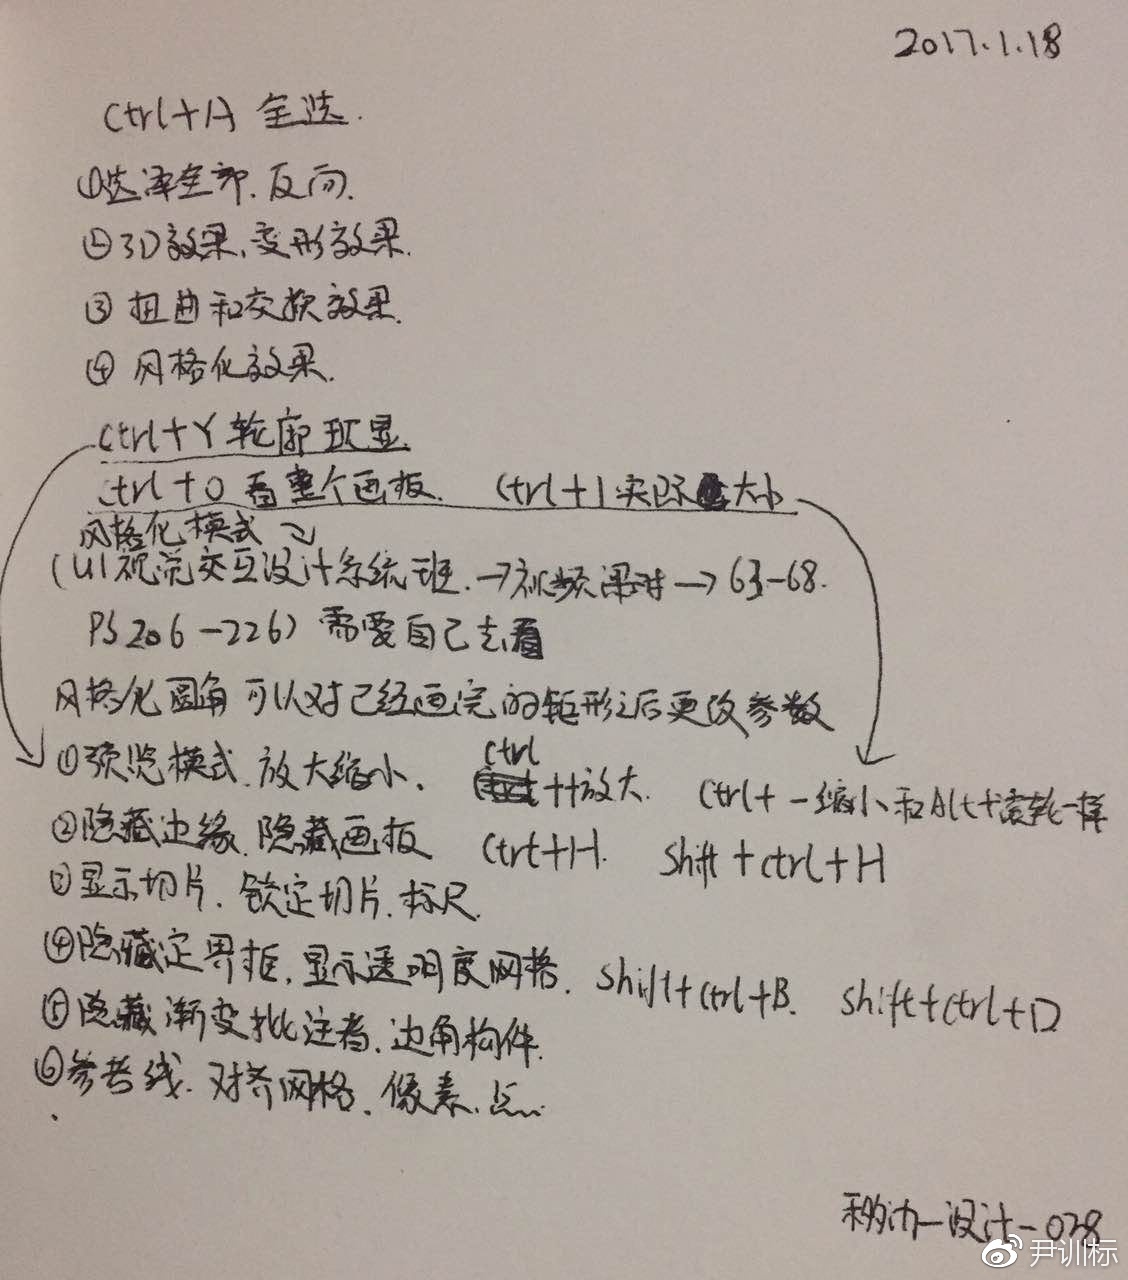 2017.1.18
Ctrl+A 全选.
①选泽全部.反向.
②3D效果、变形效果.
③ 扭曲和交换效果.
④ 风格化效果.
Ctrl+Y轮廓 显.
Ctrl+0 看整个画板. Ctrl+1 实际 大小
风格化模式
(UI视觉交互设计系统班.→视频课时→63-68.
PS 206-226) 需要自己去看
风格化圆角 可以对已经画完的矩形之后更改参数
①预览模式.放大缩小、 Ctrl ++放大. Ctrl+-缩小和Alt+滚轮一样
②隐藏边缘.隐藏画板 Ctrt+H. Shift+ctrl+H
③显示切片.锁定切片.标尺.
④隐藏定界框.显示透明度网格. Shift+Ctrl+B. shift+Ctrl+D
⑤隐藏渐变批注者.边角构件.
⑥参考线.对齐网格、像素.点..
设计-028
尹训标